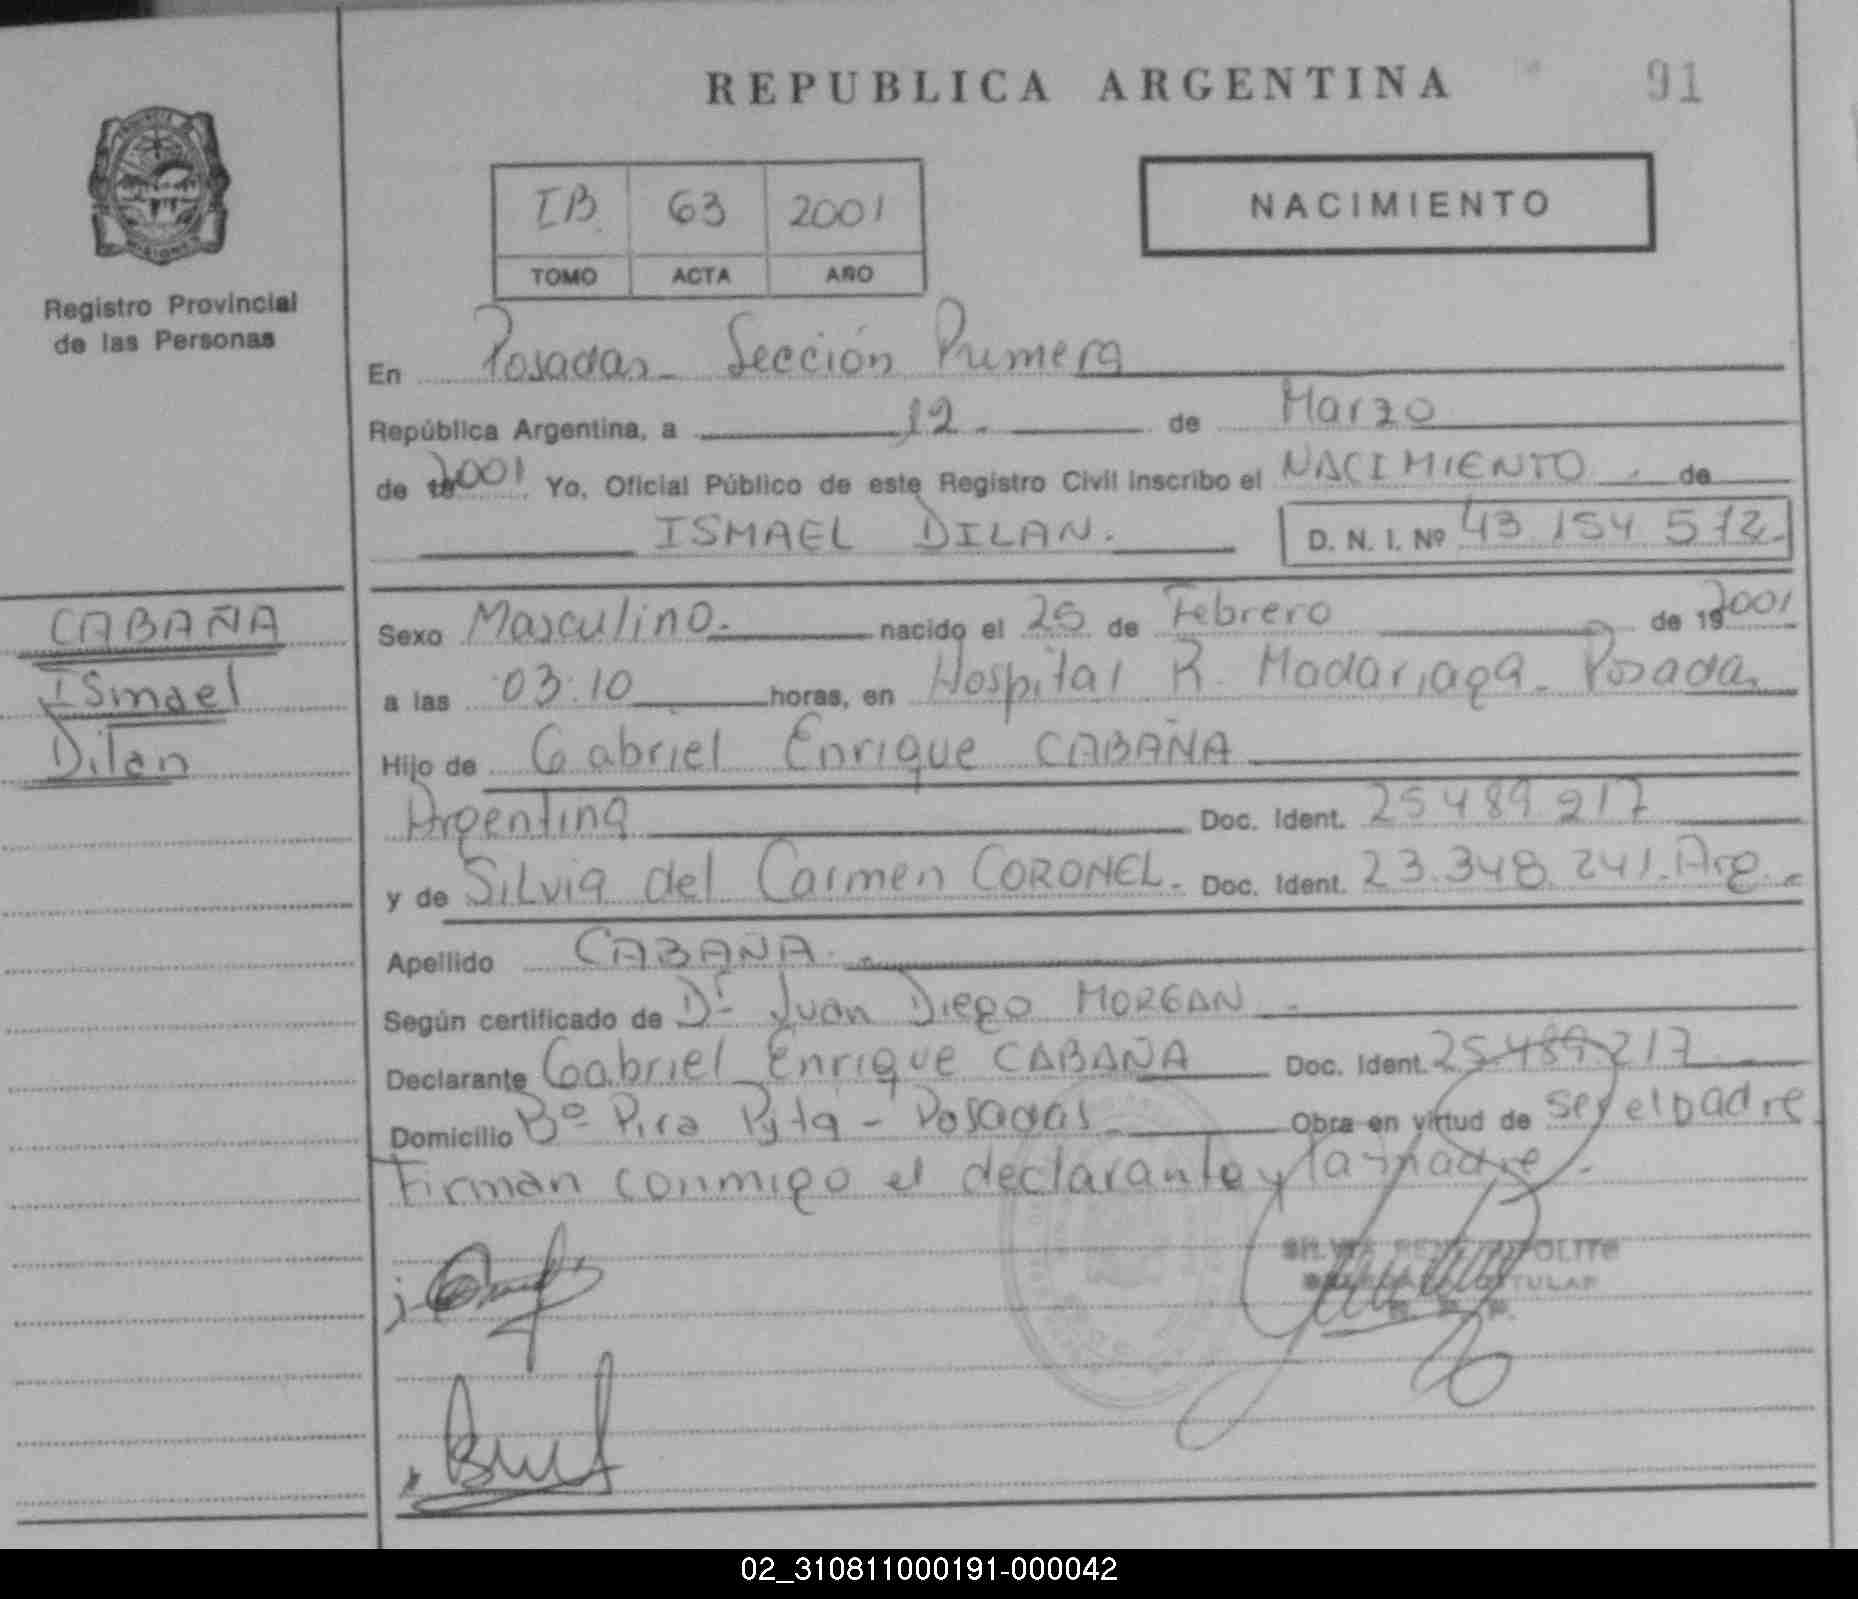 REPUBLICA ARGENTINA
91
PROVINCIA DE
MISIONES
Registro Provincial
de las Personas
IB 63 2001
TOMO ACTA AÑO
NACIMIENTO
En Posadas - Sección Primera
República Argentina, a 12 - de Marzo
de 2001 Yo, Oficial Público de este Registro Civil inscribo el NACIMIENTO - de
ISMAEL DILAN. D. N. I. Nº 43 154 572-
CABAÑA
Ismael
Dilan
Sexo Masculino - nacido el 25 de Febrero de 19 2001
a las 03:10 horas, en Hospital R. Madariaga - Posadas
Hijo de Gabriel Enrique CABAÑA
Argentina Doc. Ident. 25 489 217
y de Silvia del Carmen CORONEL - Doc. Ident. 23.348.241. Arg. -
Apellido CABAÑA -
Según certificado de Dr. Juan Diego MORGAN -
Declarante Gabriel Enrique CABAÑA Doc. Ident. 25.489 217
Domicilio Bº Pira Pytá - Posadas Obra en virtud de ser el padre
Firman conmigo el declarante y la madre -
SILVIA
TITULAR
02_310811000191-000042